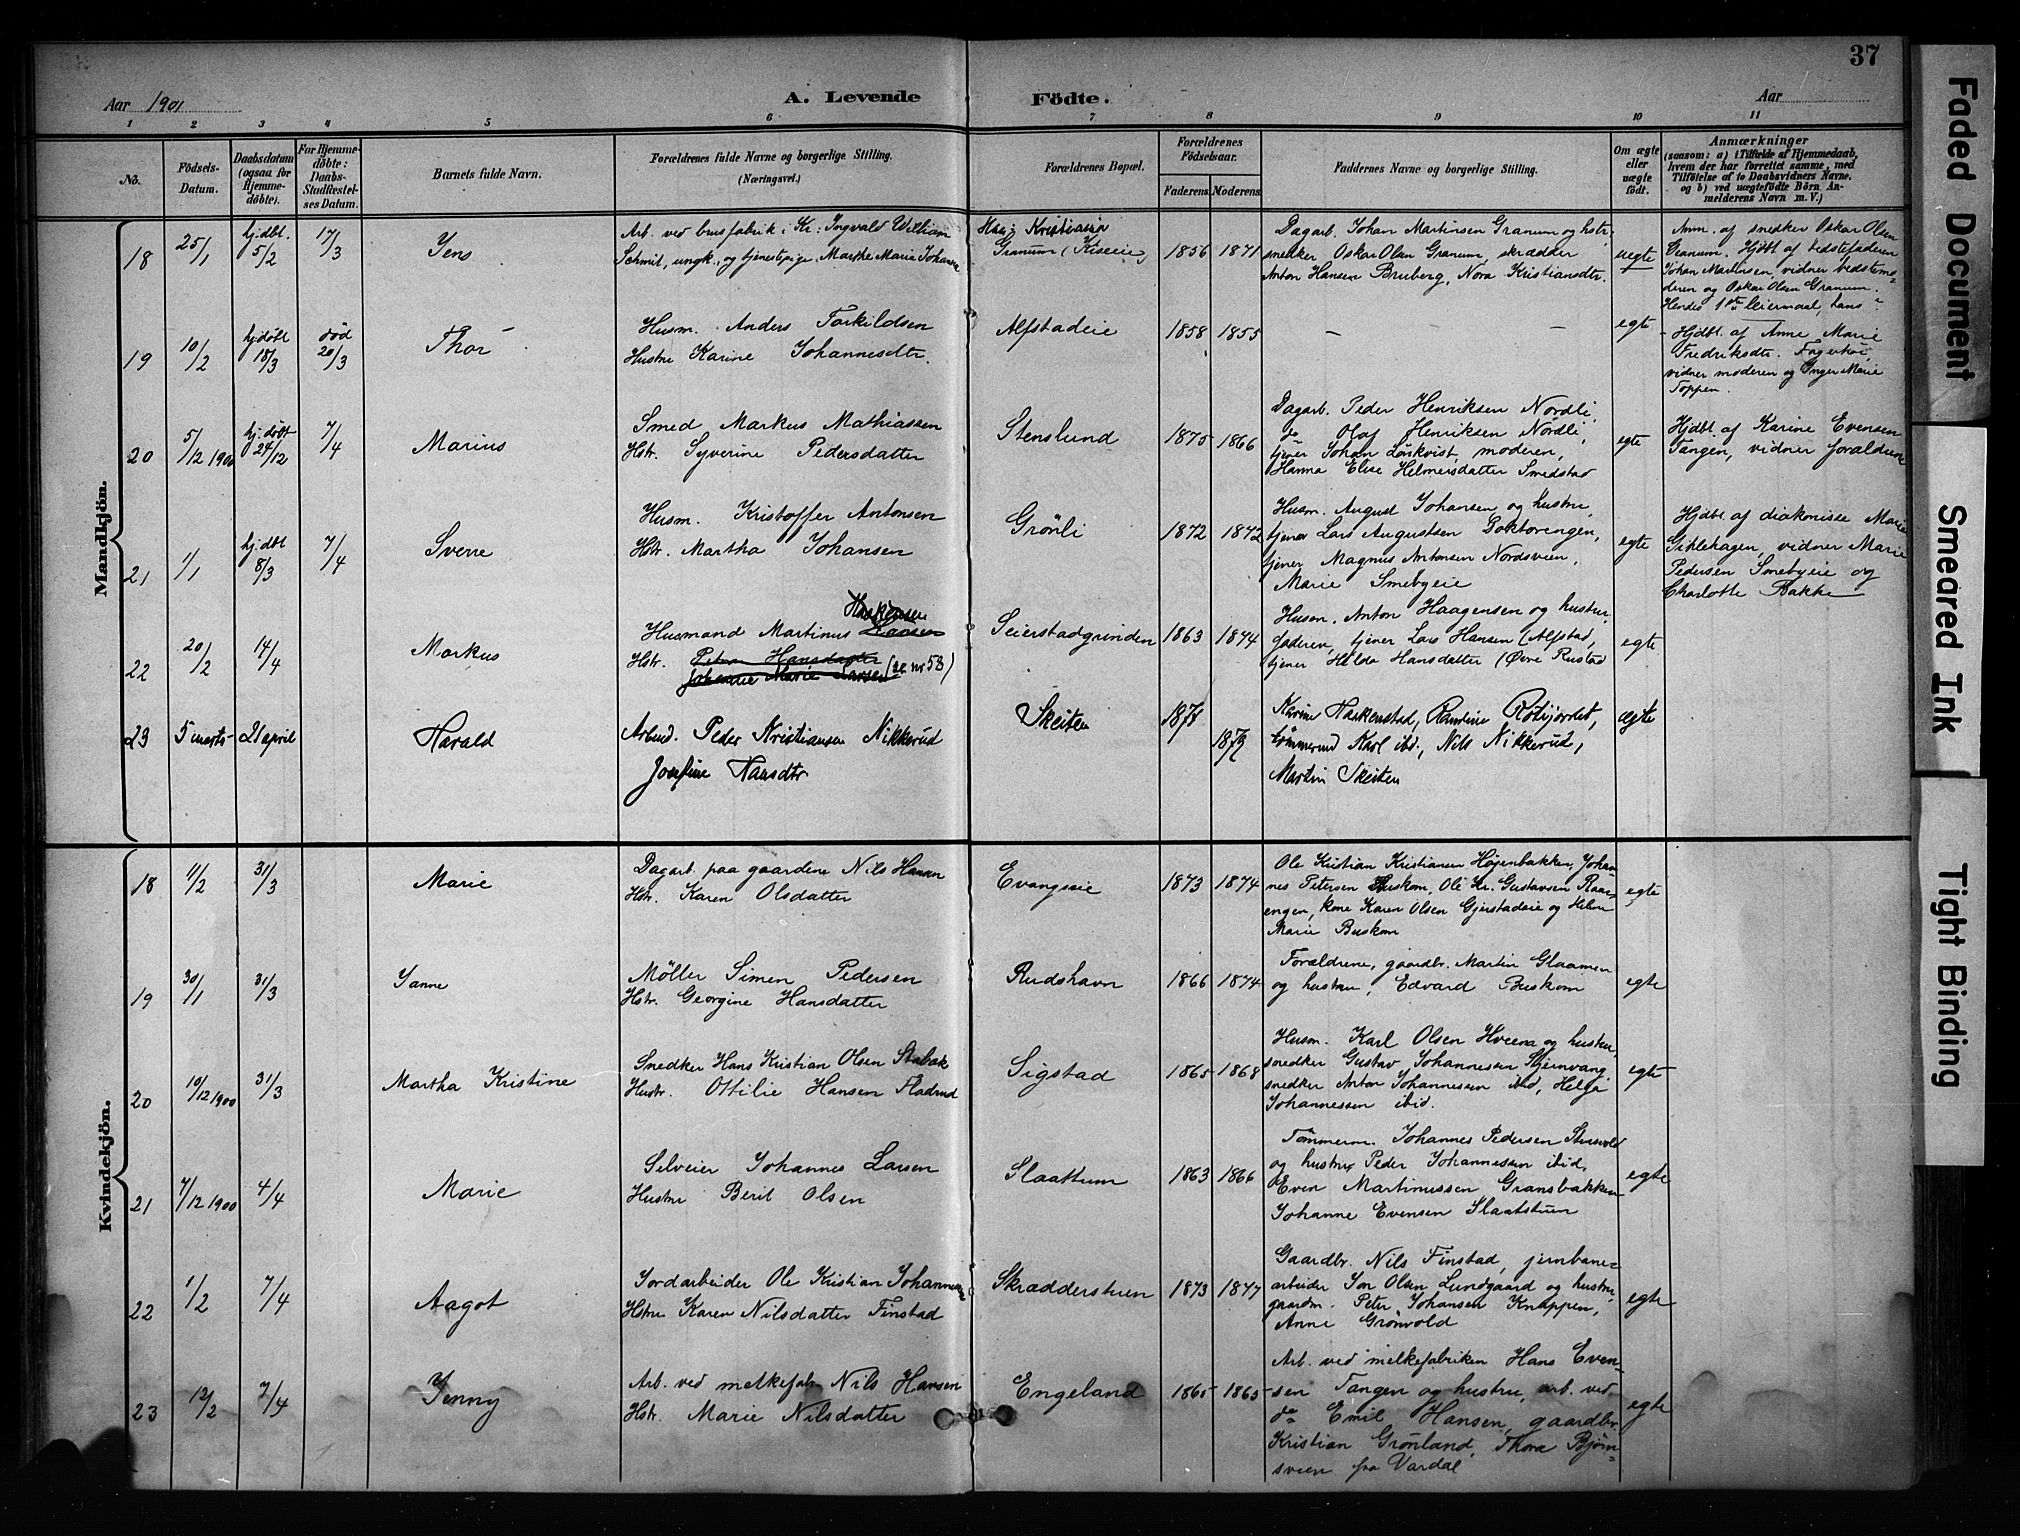 37
Aar 1901
A. Levende
Födte.
Aar
1 2 3 4 5 6 7 8 9 10 11
No.
Födsels-Datum.
Daabsdatum (ogsaa for Hjemme-döbte).
For Hjemme-döbte: Daabs-Stadfæstel-ses Datum.
Barnets fulde Navn.
Forældrenes fulde Navne og borgerlige Stilling.
(Næringsvei.)
Forældrenes Bopæl.
Forældrenes Födselsaar.
Faderens. Moderens.
Faddernes Navne og borgerlige Stilling.
Om ægte eller uægte födt.
Anmærkninger
(saasom: a) i Tilfælde af Hjemmedaab,
hvem der har forrettet samme, med
Tilföielse af to Daabsvidners Navne,
og b) ved uægtefödte Börn An-
melderens Navn m. V.)
Mandkjön.
18
25/1
hj.dbt. 5/2
17/3
Jens
Arb. ved brusfabrik i Kr: Ingvald William
Schmit, ungk., og tjenestepige Marthe Marie Johansen
Kristiania
Granum (Kiseeie)
1856 1871
Dagarb. Johan Martinsen Granum og hstr.
snedker Oskar Olsen Granum, skrædder
Anton Hansen Bruberg, Nora Kristiansdtr.
uegte
Anm. af snedker Oskar Olsen
Granum. Hjdbt. af bedstefaderen
Johan Martinsen, vidner bedstemo-
deren og Oskar Olsen Granum.
Hendes 1ste leiermaal, hans
19
10/2
hj.døbt 18/3
død 20/3
Thor
Husm. Anders Torkildsen
Hustru Karine Johannesdtr.
Alfstadeie
1858 1855
– –
egte
Hjdbt. af Anne Marie
Fredriksdtr. Fagerhøi,
vidner moderen og Inger Marie
Toppen.
20
5/12 1900
hj.døbt 24/12
7/4
Marius
Smed Markus Mathiassen
Hstr. Syverine Pedersdatter
Stenslund
1875 1866
Dagarb. Peder Henriksen Nordli,
do Olaf Henriksen Nordli,
tjener Johan Lørkvist, moderen,
Hanna Elise Helmersdatter Smedstad
egte
Hjdbt. af Karine Evensen
Tangen, vidner forældrene
21
1/1
hj.dbt 8/3
7/4
Sverre
Husm. Kristoffer Antonsen
Hstr. Martha Johansen
Grønli
1872 1872
Husm. August Johansen og hustru,
tjener Lars Augustsen Doktorengen,
tjener Magnus Antonsen Nordsveen,
Marie Smebyeie
egte
Hjdbt. af diakonisse Marie
Giklehagen, vidner Marie
Pedersen Smebyeie og
Charlotte Bakke
22
20/2
14/4
Markus
Haakensen
Husmand Martinus Hansen
Hstr. Petra Hansdatter
Johanne Marie Larsen (se nr 58)
Seierstadgrinden
1863 1874
Husm. Anton Haagensen og hustru,
faderen, tjener Lars Hansen (Alfstad,
tjener Hilda Hansdatter (Øvre Rustad
egte
23
5 marts
21 april
Harald
Arbeid. Peder Kristiansen Nikkerud
Josefine Hansdtr
Skeiten
Karine Haskenstad, Ramtine Røtsjordet,
tømmermd Karl ibd., Nils Nikkerud,
Martin Skeiten
ægte
Kvindekjön.
18
11/2
31/3
Marie
Dagarb. paa gaardene Nils Hansen
Hstr. Karen Olsdatter
Evangseie
1873 1874
Ole Kristian Kristiansen Højenbakken, Johan-
nes Petersen Buskom, Ole Kr. Gustavsen Raar-
engen, kone Karen Olsen Gjerstadeie og Helene
Marie Buskom
egte
19
30/1
31/3
Janne
Møller Simen Pedersen
Hstr. Georgine Hansdatter
Rudshavn
1866 1874
Forældrene, gaardbr. Martin Glaamen
og hustru, Edvard Buskom
egte
20
19/12 1900
31/3
Martha Kristine
Snedker Hans Kristian Olsen Stabæk
Hustr. Ottilie Hansen Fladrud
Sigstad
1865 1868
Husm. Karl Olsen Hveem og hustru,
snedker Gustav Johannessen Stjernvang,
snedker Anton Johannessen ibid, Helga
Johannessen ibid.
egte
21
7/12 1900
4/4
Marie
Selveier Johannes Larsen
Hustru Beril Olsen
Slaattum
1863 1866
Tømmerm. Johannes Pedersen Stensvold
og hustru, Peder Johannessen ibid,
Even Martinussen Gransbakken
Johanne Evensen Slaatstuen
egte
22
1/2
7/4
Aagot
Jordarbeider Ole Kristian Johannesen
Hstru Karen Nilsdatter Finstad
Skrædderstuen
1873 1877
Gaardbr. Nils Finstad, jernbane-
arbeider Jon Olsen Lundgaard og hustru,
gaardm. Peter Johansen Knappen,
Anne Grønvold
egte
23
12/2
7/4
Jenny
Arb. ved melkefabr Nils Hansen
Hstr. Marie Nilsdatter
Engeland
1865 1865
Arb. ved melkefabriken Hans Even-
sen Tangen og hustru, arb. ved
do Emil Hansen, gaardbr.
Kristian Grønland, Thora Bjørn-
sveen fra Vardal
egte
Faded Document
Smeared Ink
Tight Binding